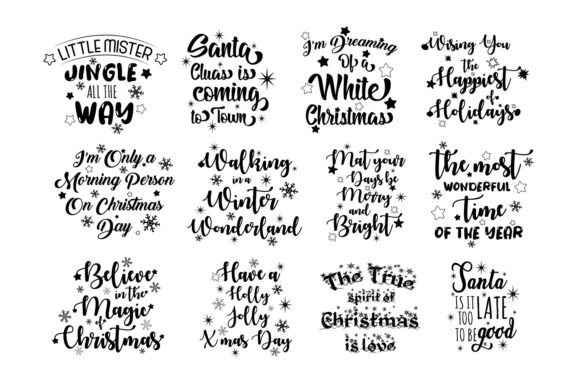 LITTLE MISTER
JINGLE
ALL THE
WAY
Santa
Cluas is
coming
to Town
I'm Dreaming
Of a
White
Christmas
Wising You
the
Happiest
of
Holidays
I'm Only a
Morning Person
On Christmas
Day
Walking
in a
Winter
Wonderland
Mat your
Days be
Merry
and
Bright
the most
WONDERFUL
Time
OF THE YEAR
Believe
in the
Magic
of
Christmas
Have a
Holly
Jolly
Xmas Day
The True
spirit of
Christmas
is love
Santa
IS IT LATE
TOO
TO BE good